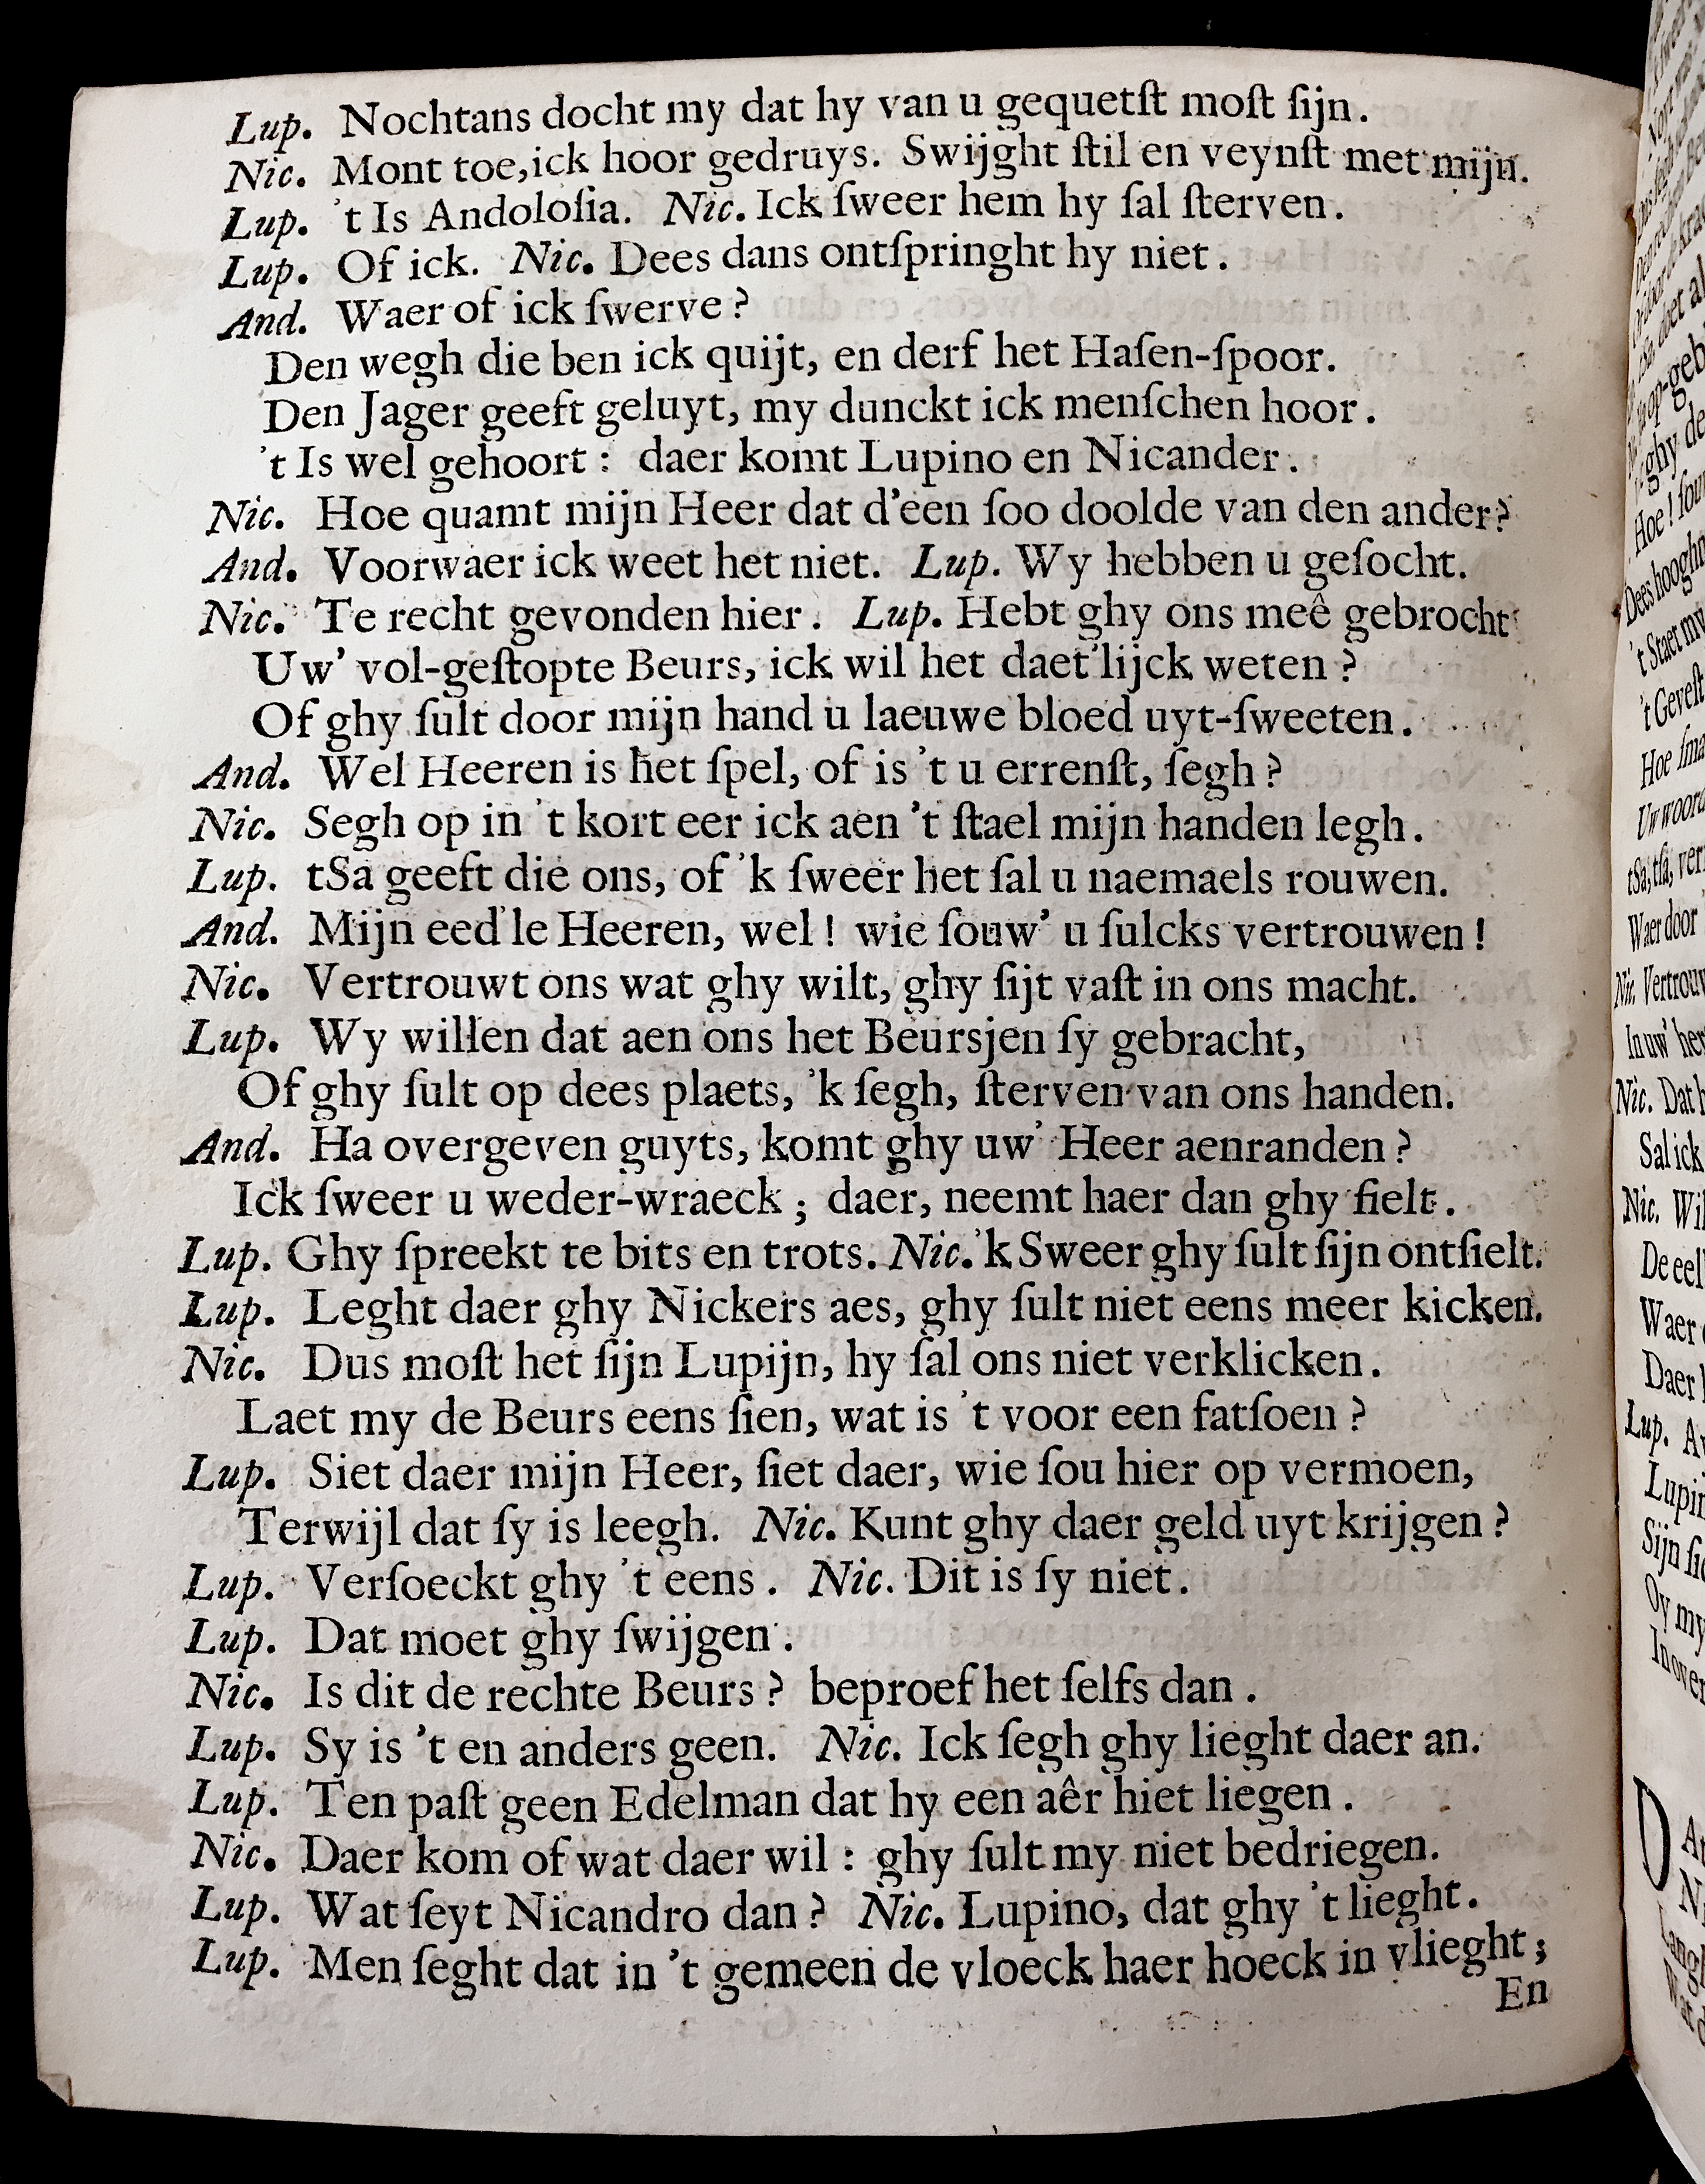 Lup. Nochtans docht my dat hy van u gequetſt moſt ſijn.
Nic. Mont toe,ick hoor gedruys. Swijght ſtil en veynſt met mijn.
Lup. 't Is Andoloſia. Nic. Ick ſweer hem hy ſal ſterven.
Lup. Of ick. Nic. Dees dans ontſpringht hy niet.
And. Waer of ick ſwerve?
Den wegh die ben ick quijt, en derf het Haſen-ſpoor.
Den Jager geeft geluyt, my dunckt ick menſchen hoor.
't Is wel gehoort: daer komt Lupino en Nicander.
Nic. Hoe quamt mijn Heer dat d'een ſoo doolde van den ander?
And. Voorwaer ick weet het niet. Lup. Wy hebben u geſocht.
Nic. Te recht gevonden hier. Lup. Hebt ghy ons meê gebrocht
Uw' vol-geſtopte Beurs, ick wil het daet'lijck weten?
Of ghy ſult door mijn hand u laeuwe bloed uyt-ſweeten.
And. Wel Heeren is het ſpel, of is 't u errenſt, ſegh?
Nic. Segh op in 't kort eer ick aen 't ſtael mijn handen legh.
Lup. tSa geeft die ons, of 'k ſweer het ſal u naemaels rouwen.
And. Mijn eed'le Heeren, wel! wie ſouw' u ſulcks vertrouwen!
Nic. Vertrouwt ons wat ghy wilt, ghy ſijt vaſt in ons macht.
Lup. Wy willen dat aen ons het Beursjen ſy gebracht,
Of ghy ſult op dees plaets, 'k ſegh, ſterven van ons handen.
And. Ha overgeven guyts, komt ghy uw' Heer aenranden?
Ick ſweer u weder-wraeck; daer, neemt haer dan ghy fielt.
Lup. Ghy ſpreekt te bits en trots. Nic. 'k Sweer ghy ſult ſijn ontſielt.
Lup. Leght daer ghy Nickers aes, ghy ſult niet eens meer kicken.
Nic. Dus moſt het ſijn Lupijn, hy ſal ons niet verklicken.
Laet my de Beurs eens ſien, wat is 't voor een fatſoen?
Lup. Siet daer mijn Heer, ſiet daer, wie ſou hier op vermoen,
Terwijl dat ſy is leegh. Nic. Kunt ghy daer geld uyt krijgen?
Lup. Verſoeckt ghy 't eens. Nic. Dit is ſy niet.
Lup. Dat moet ghy ſwijgen.
Nic. Is dit de rechte Beurs? beproef het ſelfs dan.
Lup. Sy is 't en anders geen. Nic. Ick ſegh ghy lieght daer an.
Lup. Ten paſt geen Edelman dat hy een aêr hiet liegen.
Nic. Daer kom of wat daer wil: ghy ſult my niet bedriegen.
Lup. Wat ſeyt Nicandro dan? Nic. Lupino, dat ghy 't lieght.
Lup. Men ſeght dat in 't gemeen de vloeck haer hoeck in vlieght;
En